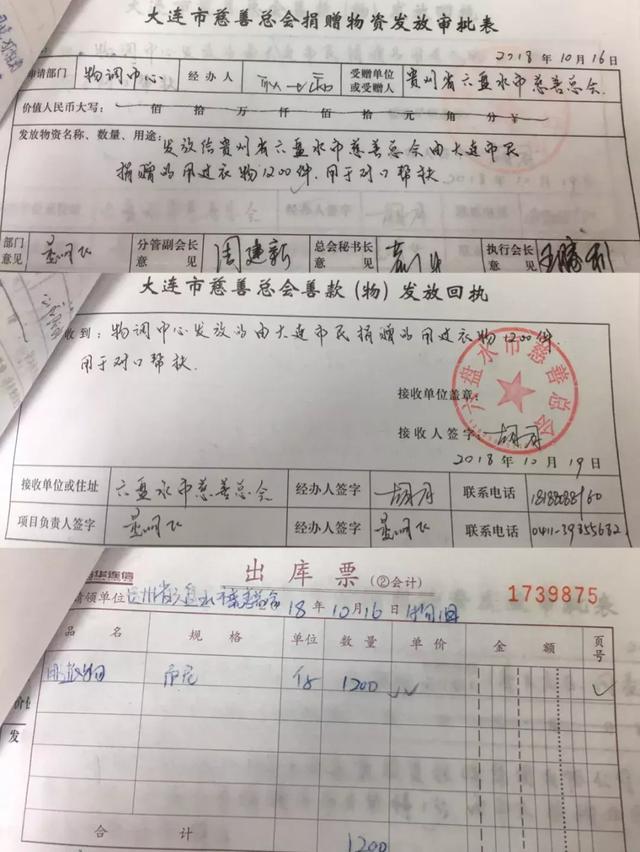 大连市慈善总会捐赠物资发放审批表
2018 年 10 月 16 日
申请部门 物调中心 经办人 受赠单位或受赠人 贵州省六盘水市慈善总会
价值人民币大写： 佰 拾 万 仟 佰 拾 元 角 分 ￥
发放物资名称、数量、用途：发放给贵州省六盘水市慈善总会由大连市民
捐赠的用过衣物1200件.用于对口帮扶.
部门意见 分管副会长意见 周建新 总会秘书长意见 执行会长意见
大连市慈善总会善款（物）发放回执
收到：物调中心发放的由大连市民捐赠的用过衣物1200件.
用于对口帮扶.
接收单位盖章：
六盘水市慈善总会
接收人签字：胡丹
2018 年 10 月 19 日
接收单位或住址 六盘水市慈善总会 经办人签字 胡丹 联系电话
项目负责人签字 经办人签字 联系电话 0411-39355632
出库票（②会计） 1739875
请领单位 贵州省六盘水市慈善总会 18 年 10 月 16 日
品名 规格 单位 数量 单价 金额 页号
市民 件 1200
合计 1200